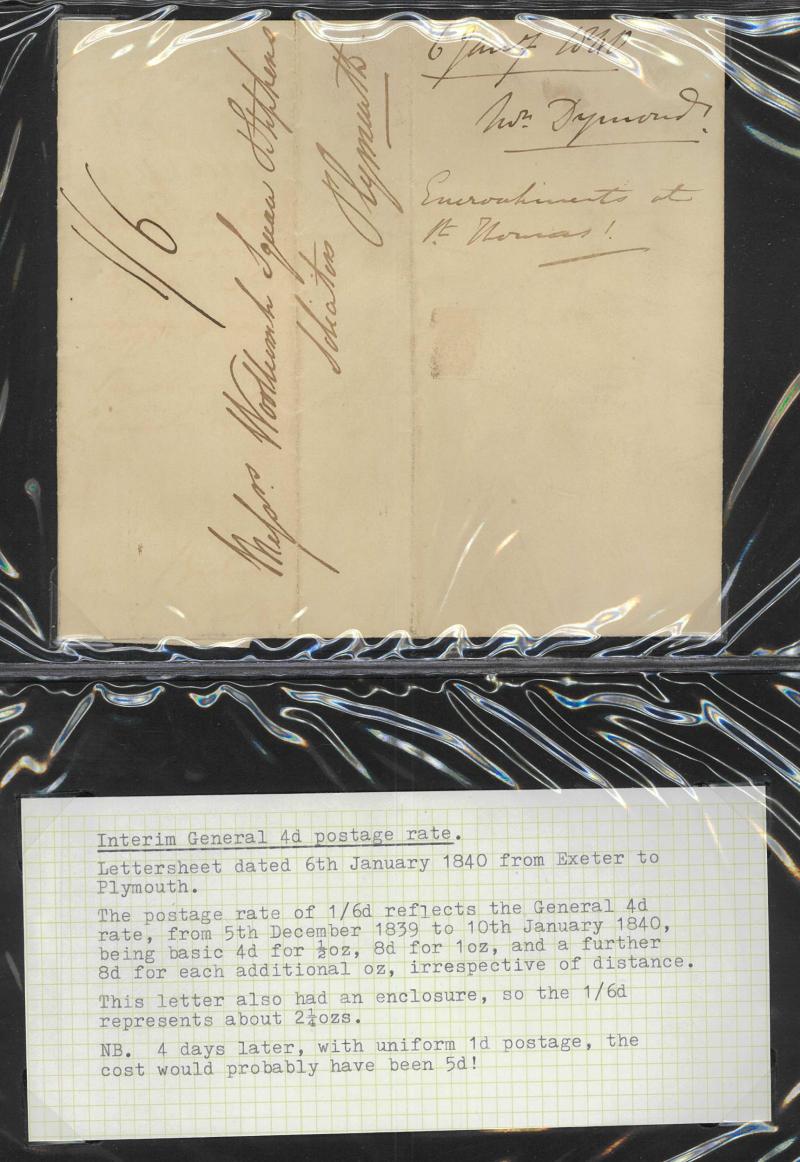 6 Jany 1840
Wm Dymond
Encroachments at
St Thomas!
1/6
Messrs Woollcombe Square & Stephens
Solicitors
Plymouth
Interim General 4d postage rate.
Lettersheet dated 6th January 1840 from Exeter to
Plymouth.
The postage rate of 1/6d reflects the General 4d
rate, from 5th December 1839 to 10th January 1840,
being basic 4d for ½oz, 8d for 1oz, and a further
8d for each additional oz, irrespective of distance.
This letter also had an enclosure, so the 1/6d
represents about 2¼ozs.
NB. 4 days later, with uniform 1d postage, the
cost would probably have been 5d!